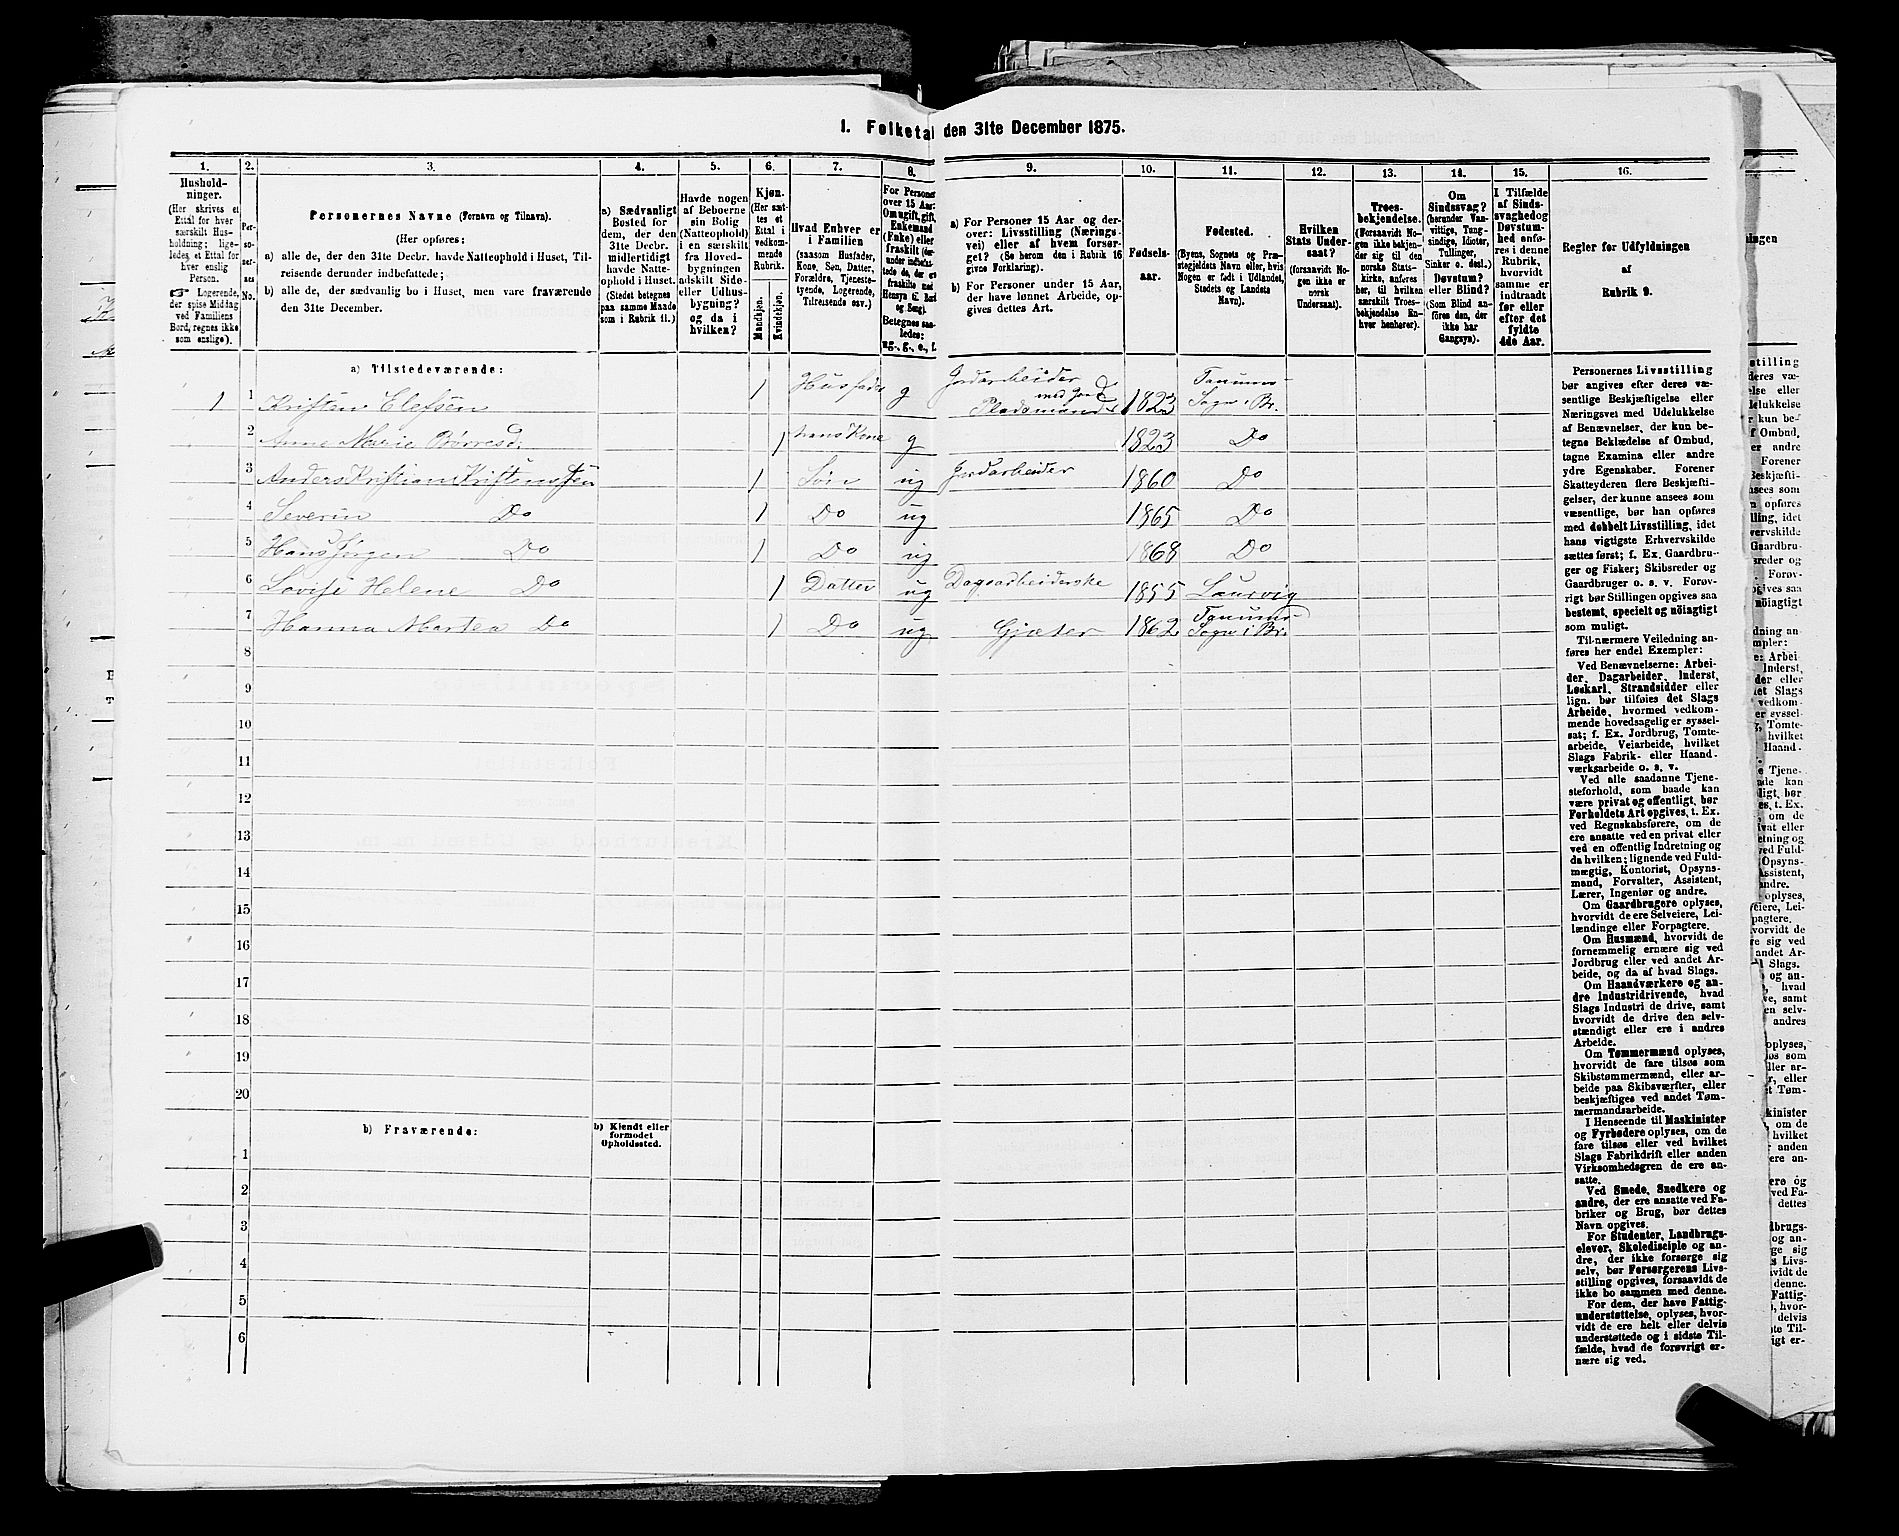 I. Folketal den 31te December 1875.
1. 2. 3. 4. 5. 6. 7. 8. 9. 10. 11. 12. 13. 14. 15. 16.
Hushold-
ninger.
(Her skrives et
Ettal for hver
særskilt Hus-
holdning; lige-
ledes et Ettal for
hver enslig
Person.
☞ Logerende,
der spise Middag
ved Familiens
Bord, regnes ikke
som enslige).
Per-
so-
ner-
nes
No.
Personernes Navne (Fornavn og Tilnavn).
(Her opføres:
a) alle de, der den 31te Decbr. havde Natteophold i Huset, Til-
reisende derunder indbefattede;
b) alle de, der sædvanlig bo i Huset, men vare fraværende
den 31te December.
a) Sædvanligt
Bosted for
dem, der den
31te Decbr.
midlertidigt
havde Natte-
ophold i Huset.
(Stedet betegnes
paa samme Maade
som i Rubrik 11.)
Havde nogen
af Beboerne
sin Bolig
(Natteophold)
i en særskilt
fra Hoved-
bygningen
adskilt Side-
eller Udhus-
bygning?
og da i
hvilken?
Kjøn.
(Her sæt-
tes et
Ettal i
vedkom-
mende
Rubrik.
Mandkjøn.
Kvindekjøn.
Hvad Enhver er
i Familien
(saasom Husfader,
Kone, Søn, Datter,
Forældre, Tjeneste-
tyende, Logerende,
Tilreisende osv.)
For Personer
over 15 Aar:
Om ugift, gift,
Enkemand
(Enke) eller
fraskilt (der-
under indbefat-
tede de, der ere
fraskilte med
Hensyn til Bord
og Seng).
Betegnes saa-
ledes:
ug., g., e., f.
a) For Personer 15 Aar og der-
over: Livsstilling (Nærings-
vei) eller af hvem forsør-
get? (Se herom den i Rubrik 16
givne Forklaring).
b) For Personer under 15 Aar,
der have lønnet Arbeide, op-
gives dettes Art.
Fødsels-
aar.
Fødested.
(Byens, Sognets og Præ-
stegjeldets Navn eller, hvis
Nogen er født i Udlandet,
Stedets og Landets
Navn).
Hvilken
Stats Under-
saat?
(forsaavidt No-
gen ikke er
norsk
Undersaat).
Troes-
bekjendelse.
(Forsaavidt No-
gen ikke bekjen-
der sig til den
norske Stats-
kirke, anføres
her, til hvilken
særskilt Troes-
bekjendelse En-
hver henhører).
Om
Sindssvag?
(herunder Van-
vittige, Tung-
sindige, Idioter,
Tullinger,
Sinker o. desl.)
Døvstum?
eller Blind?
(Som Blind an-
føres den, der
ikke har
Gangsyn).
I Tilfælde
af Sinds-
svaghed og
Døvstum-
hed anfø-
res i denne
Rubrik,
hvorvidt
samme er
indtraadt
før eller
efter det
fyldte
4de Aar.
Regler for Udfyldningen
af
Rubrik 9.
a) Tilstedeværende:
1 1 Kristen Elefsen 1 Husfader g Jordarbeider med Jord Pladsmand 1823 Tanums Sogn i Br.
2 Anne Marie Børresd. 1 hans Kone g 1823 Do
3 Anders Kristian Kristenssen 1 Søn ug Jordarbeider 1860 Do
4 Severin Do 1 Do ug 1865 Do
5 Hans Jørgen Do 1 Do ug 1868 Do
6 Lovise Helene Do 1 Datter ug Dagsarbeiderske 1855 Laurvig
7 Hanna Martea Do 1 Do ug Gjæter 1862 Tanums Sogn i Br.
8
9
10
11
12
13
14
15
16
17
18
19
20
b) Fraværende:
b) Kjendt eller
formodet
Opholdssted.
1
2
3
4
5
6
Personernes Livsstilling
bør angives efter deres væ-
sentlige Beskjæftigelse eller
Næringsvei med Udelukkelse
af Benævnelser, der kun be-
tegne Beklædelse af Ombud,
tagne Examina eller andre
ydre Egenskaber. Forener
Skatteyderen flere Beskjæfti-
gelser, der kunne ansees som
væsentlige, bør han opføres
med dobbelt Livsstilling, idet
hans vigtigste Erhvervskilde
sættes først; f. Ex. Gaardbru-
ger og Fisker; Skibsreder og
Gaardbruger o. s. v. Forøv-
rigt bør Stillingen opgives saa
bestemt, specielt og nöiagtigt
som muligt.
Til nærmere Veiledning an-
føres her endel Exempler:
Ved Benævnelserne: Arbei-
der, Dagarbeider, Inderst,
Løskarl, Strandsidder eller
lign. bør tilføies det Slags
Arbeide, hvormed vedkom-
mende hovedsagelig er syssel-
sat; f. Ex. Jordbrug, Tomte-
arbeide, Veiarbeide, hvilket
Slags Fabrik- eller Haand-
værksarbeide o. s. v.
Ved alle saadanne Tjene-
steforhold, som baade kan
være privat og offentligt, bør
Forholdets Art opgives, t. Ex.
ved Regnskabsførere, om de
ere ansatte ved en privat eller
ved en offentlig Indretning og
da hvilken; lignende ved Fuld-
mægtig, Kontorist, Opsyns-
mand, Forvalter, Assistent,
Lærer, Ingeniør og andre.
Om Gaardbrugere oplyses,
hvorvidt de ere Selveiere, Lei-
lændinge eller Forpagtere.
Om Husmænd, hvorvidt de
fornemmelig ernære sig ved
Jordbrug eller ved andet Ar-
beide, og da af hvad Slags.
Om Haandværkere og an-
dre Industridrivende, hvad
Slags Industri de drive, samt
hvorvidt de drive den selv-
stændigt eller ere i andres
Arbeide.
Om Tømmermænd oplyses,
hvorvidt de fare tilsøs som
Skibstømmermænd, eller ar-
beide paa Skibsværfter, eller
beskjæftiges ved andet Tøm-
mermandsarbeide.
I Henseende til Maskinister
og Fyrbødere oplyses, om de
fare tilsøs eller ved hvilket
Slags Fabrikdrift eller anden
Virksomhedsgren de ere an-
satte.
Ved Smede, Snedkere og
andre, der ere ansatte ved Fa-
briker og Brug, bør dettes
Navn opgives.
For Studenter, Landbrugs-
elever, Skoledisciple og an-
dre, der ikke forsørge sig
selv, bør Forsørgerens Livs-
stilling opgives, forsaavidt de
ikke bo sammen med denne.
For dem, der have Fattig-
understøttelse, oplyses, hvor-
vidt de ere helt eller delvis
understøttede og i sidste Til-
fælde, hvad de forøvrigt er-
nære sig ved.